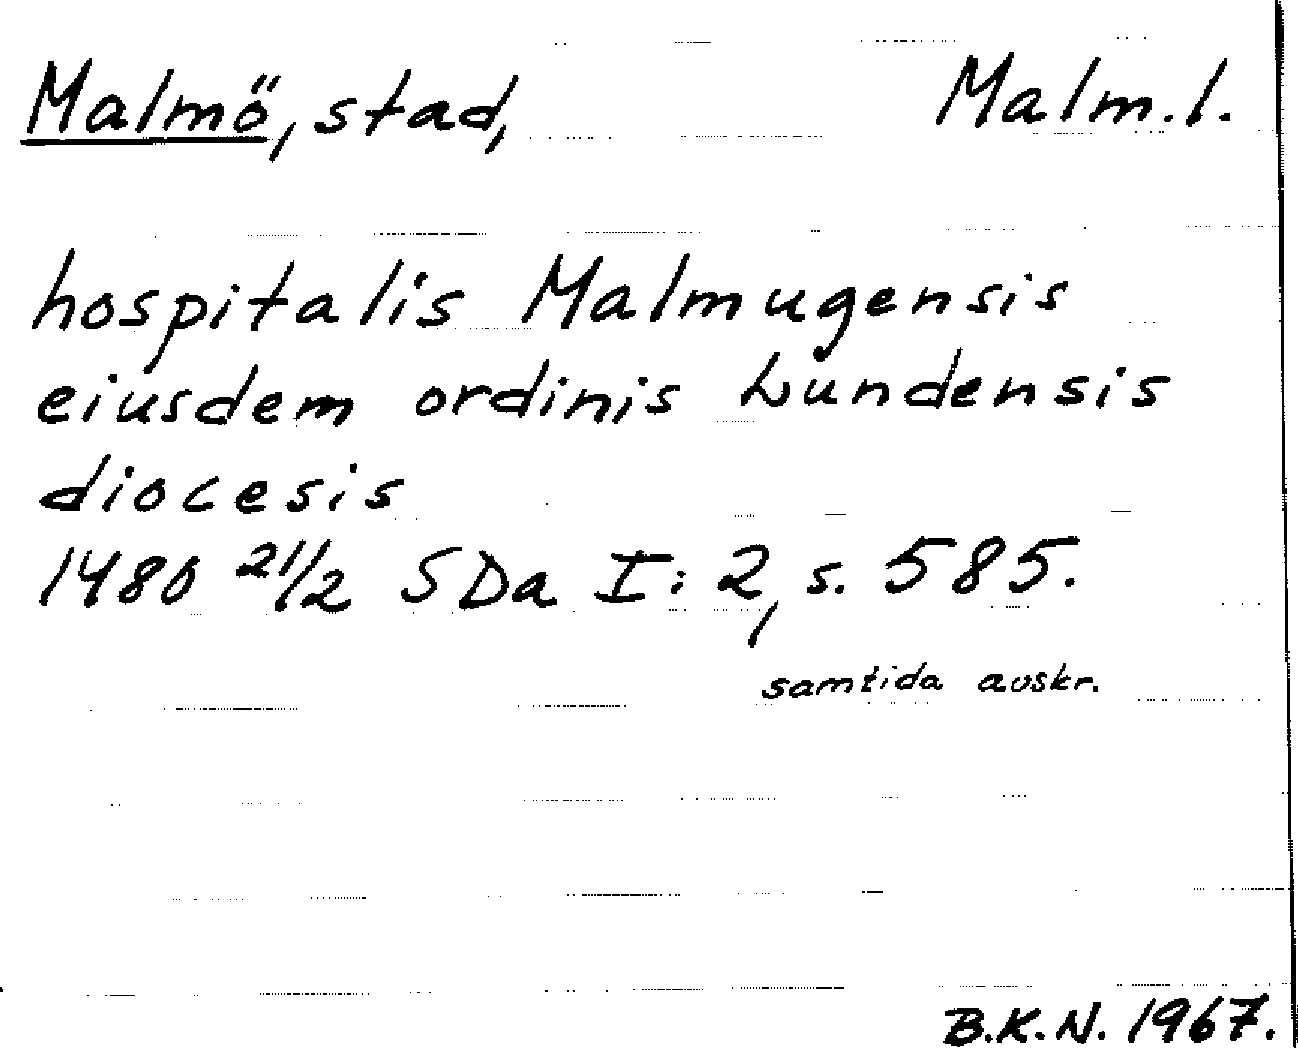 Malmö, stad, Malm.l.
hospitalis Malmugensis
eiusdem ordinis Lundensis
diocesis
1480 21/2 SDa I:2, s. 585.
samtida avskr.
B.K.N. 1967.